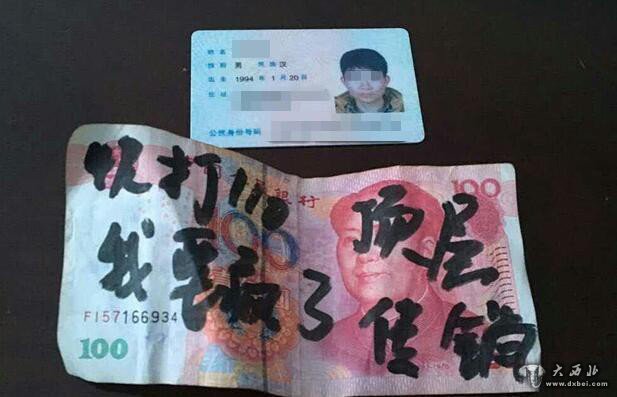 姓名
性别 男 民族 汉
出生 1994 年 1 月 20 日
住址
公民身份号码
快打110 顶层
我要疯了 传销
银行
100
100
FI57166934
100
大西北
www.dxbei.com